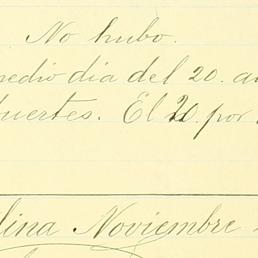 No hubo.
medio dia del 20. a
fuertes. El 20. por
lina Noviembre